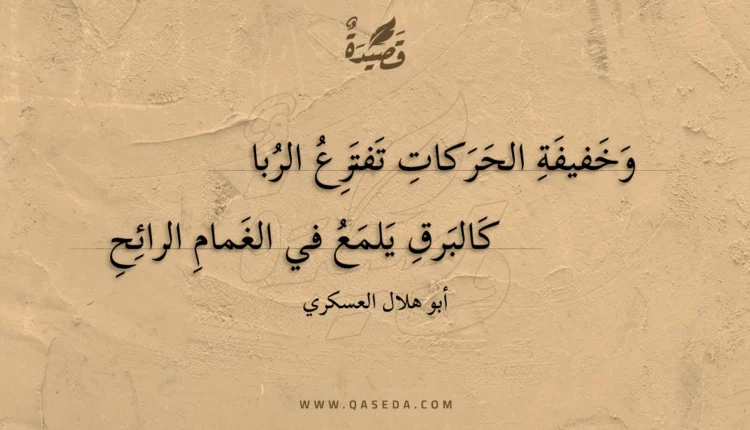 قَصِيدَةٌ
وَخَفيفَةِ الحَرَكاتِ تَفتَرِعُ الرُبا
كَالبَرقِ يَلمَعُ في الغَمامِ الرائِحِ
أبو هلال العسكري
WWW.QASEDA.COM